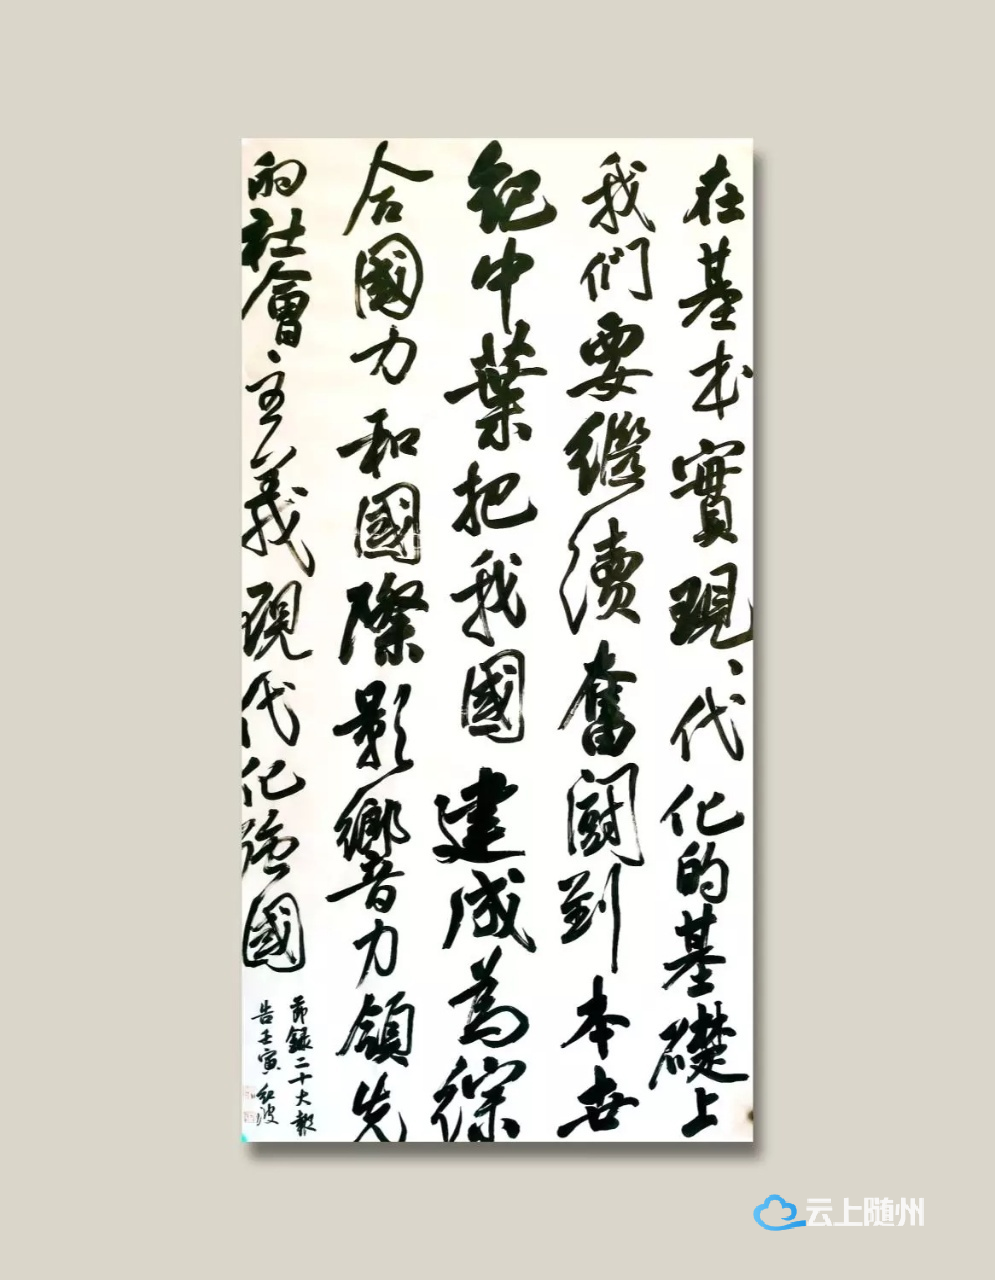 在基本實現、代化的基礎上
我们要繼續奮鬪到本世
紀中葉把我國建成為综
合國力和國際影響力領先
的社會主義現代化強國
節錄二十大報
告壬寅紅波
云上随州